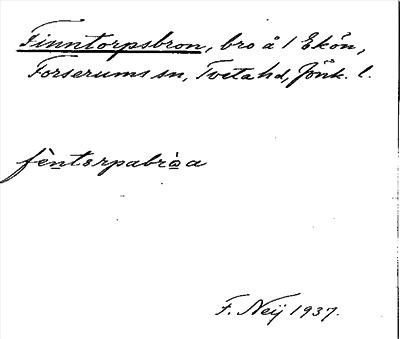 Finntorpsbron, bro å / Ekön,
Forserums sn, Tveta hd, Jönk. l.
fèntorpabròa
F. Neij 1937.